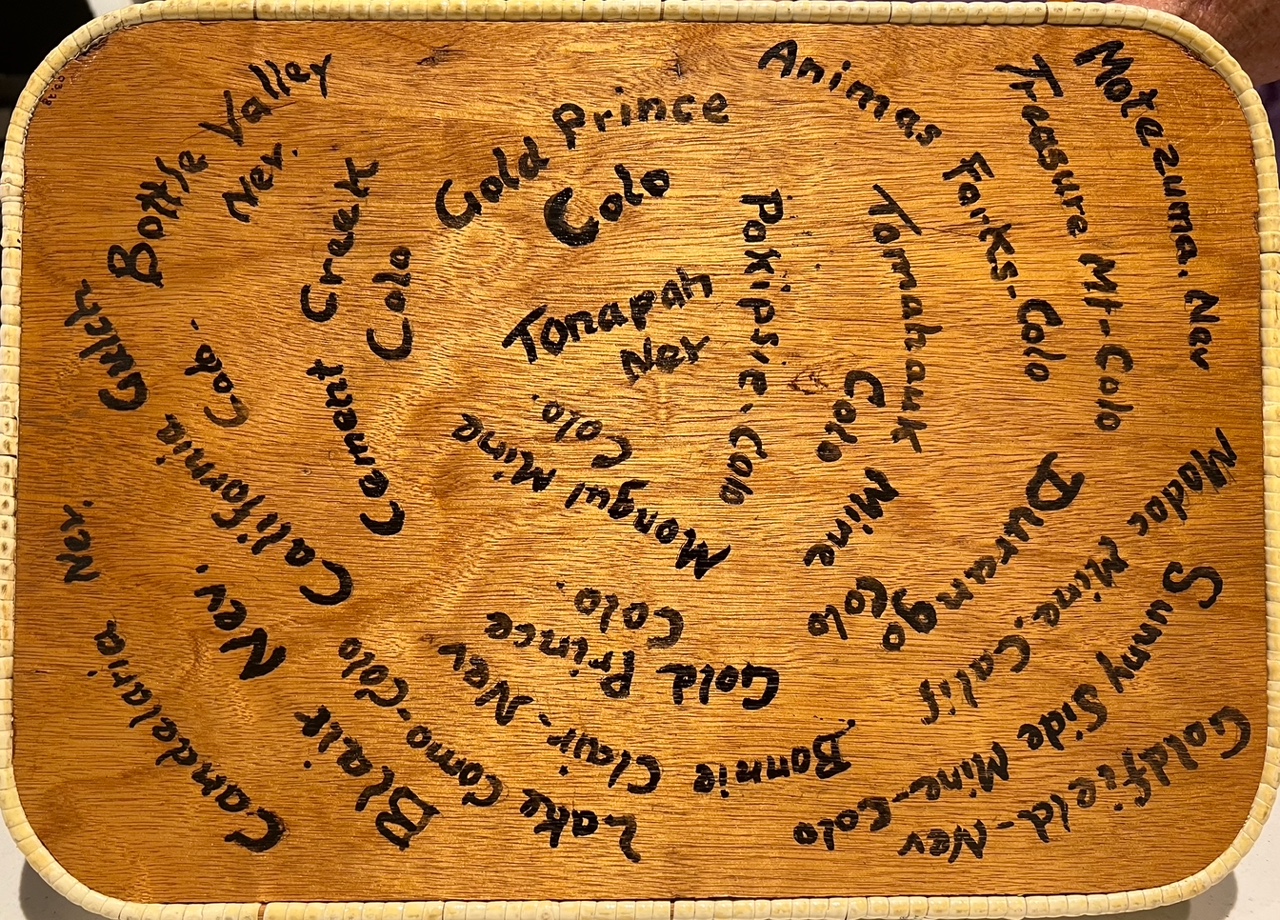 Bottle Valley
Nev.
Gold Prince
Colo
Animas Forks-Colo
Treasure Mt-Colo
Motezuma. Nev
Cement Creek
Colo
Tonapah
Nev
Pokipsie. Colo
Tomahauk
Mine
Colo
Colo
California Gulch.
Colo.
Mongul Mine
Colo.
Durango
Modoc Mine. Calif
Sunny Side Mine-Colo
Goldfield-Nev
Gold Prince
Colo.
Bonnie Clair-Nev
Lake Como-Colo
Blair Nev.
Candelaria Nev.